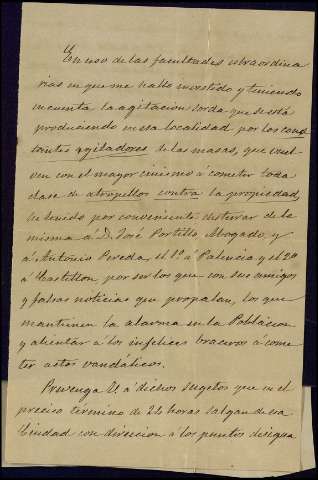 En uso de las facultades estraordina
rias en que me hallo investido y teniendo
en cuenta la agitacion sorda que se está
produciendo en esa localidad por los cons
tantes agitadores de las masas, que vuel
ven con el mayor cinismo á cometer toda
clase de atropellos contra la propiedad,
he tenido por conveniente desterrar de la
misma á D. José Portillo Abogado y
á Antonio Pereda, el 1º á Palencia y el 2º
á Castellon, por ser los que con sus amigos
y falsas noticias que propalan, los que
mantienen la alarma en la Poblacion
y alientan á los infelices braceros á come
ter actos vandálicos.
Prevenga V. á dichos sugetos que en el
preciso termino de 24 horas salgan de esa
Ciudad con direccion á los puntos designa